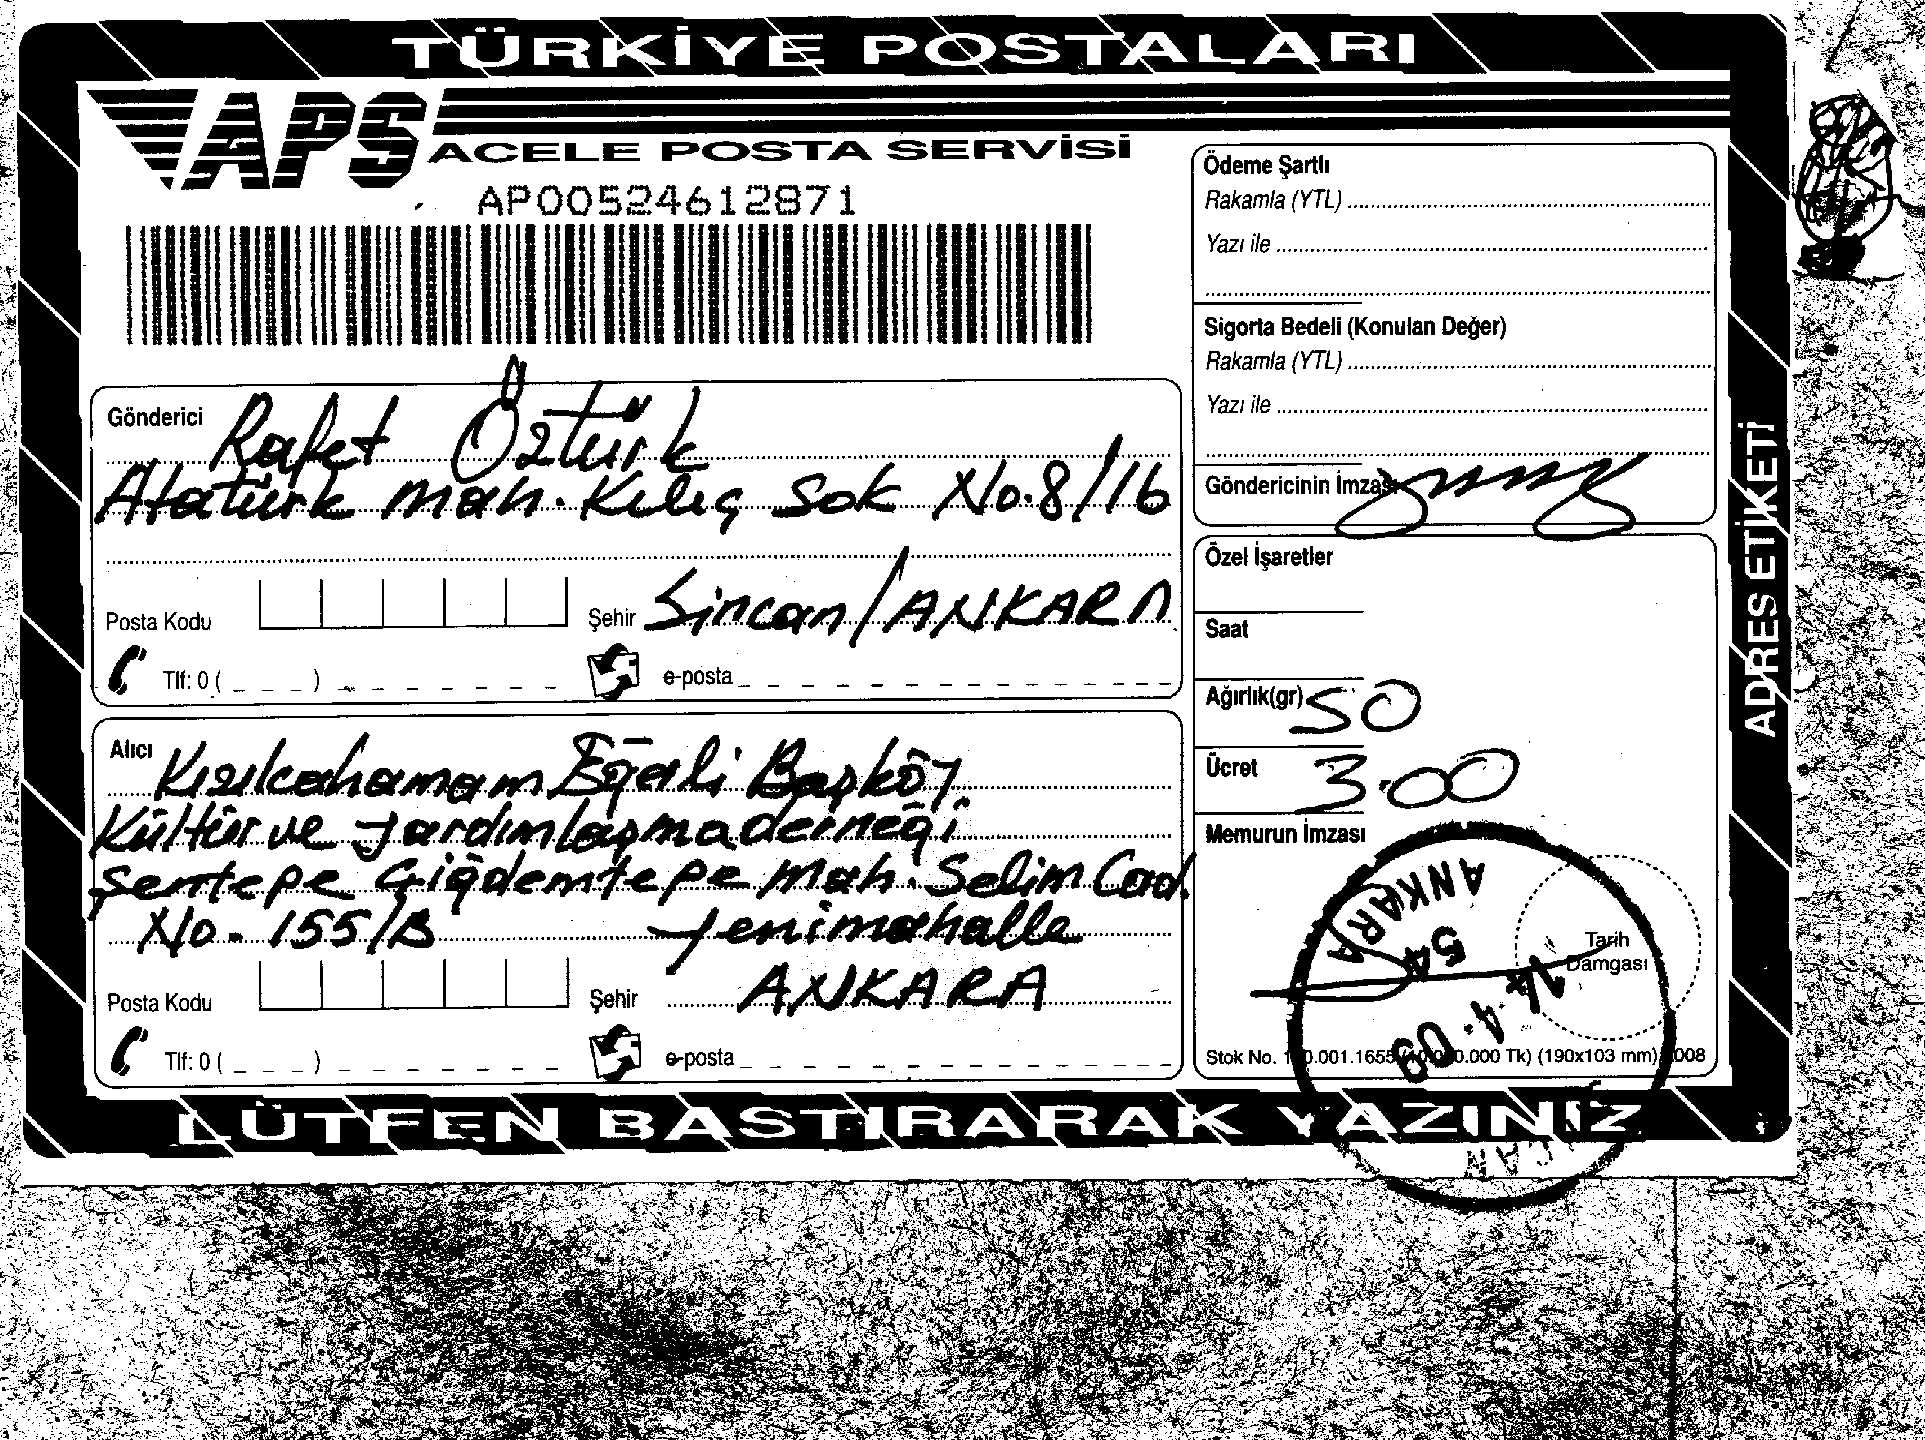 TÜRKİYE POSTALARI
APS
ACELE POSTA SERVİSİ
AP00524612871
Gönderici Rafet Öztürk
Atatürk mah. Kılıç Sok No:8/16
Posta Kodu
Şehir Sincan/ANKARA
Tlf: 0 ( _ _ _ ) _ _ _ _ _ _ _
e-posta
Alıcı Kızılcahamam Eğerli Başköy
Kültür ve yardımlaşma derneği
Şentepe Çiğdemtepe mah. Selim Cad.
No. 155/B Yenimahalle
Posta Kodu
Şehir ANKARA
Tlf: 0 ( _ _ _ ) _ _ _ _ _ _ _
e-posta
Ödeme Şartlı
Rakamla (YTL)
Yazı ile
Sigorta Bedeli (Konulan Değer)
Rakamla (YTL)
Yazı ile
Göndericinin İmzası
Özel İşaretler
Saat
Ağırlık(gr) 50
Ücret 3.00
Memurun İmzası
Tarih
Damgası
ANKARA
54
14.4.09
Stok No. (190x103 mm)
ADRES ETİKETİ
LÜTFEN BASTIRARAK YAZINIZ